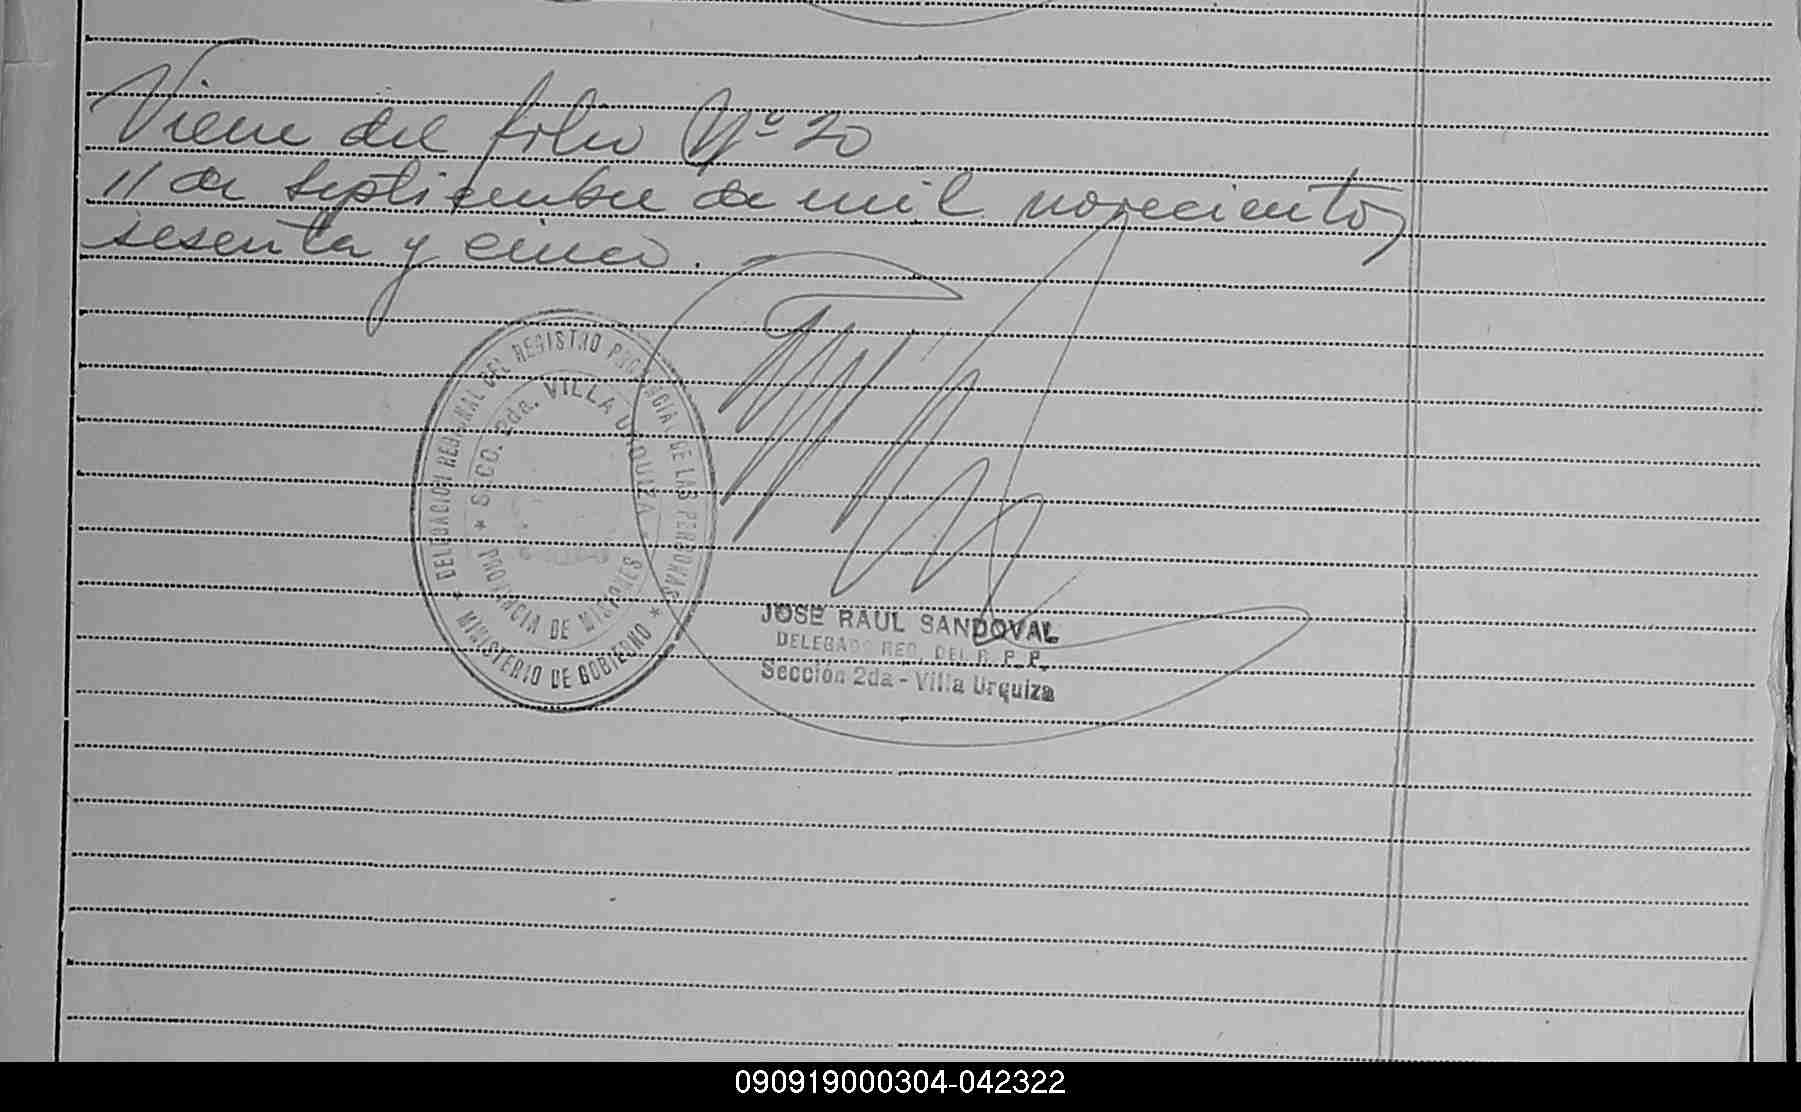 Viene del folio Nº 20
11 de septiembre de mil novecientos
sesenta y cinco.
* DELEGACION REGIONAL DEL REGISTRO PROVINCIAL DE LAS PERSONAS *
MINISTERIO DE GOBIERNO
* SECC. 2da. VILLA URQUIZA *
PROVINCIA DE MISIONES
JOSE RAUL SANDOVAL
DELEGADO REG. DEL R. P. P.
Sección 2da - Villa Urquiza
090919000304-042322